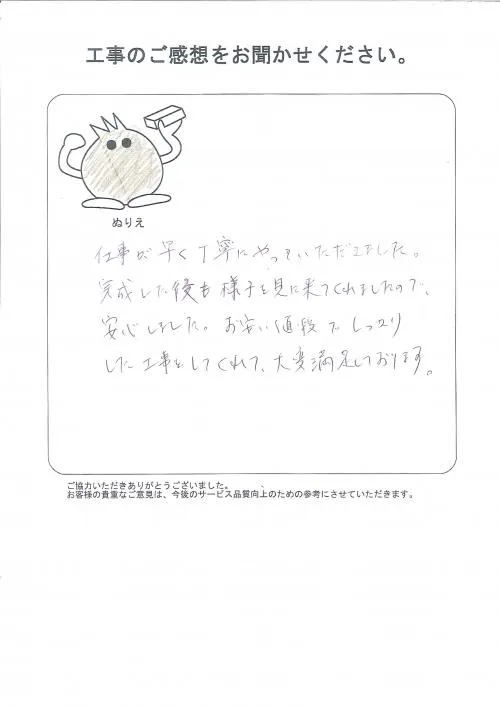 工事のご感想をお聞かせください。
ぬりえ
仕事が早く丁寧にやっていただきました。
完成した後も様子を見に来てくれましたので、
安心しました。お安い値段でしっかり
した工事をしてくれて、大変満足しております。
ご協力いただきありがとうございました。
お客様の貴重なご意見は、今後のサービス品質向上のための参考にさせていただきます。